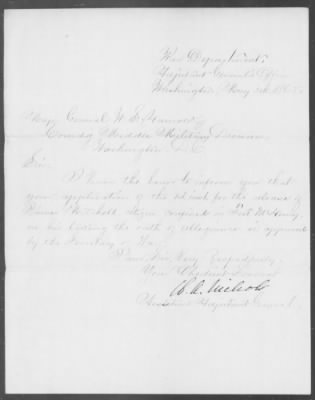 War Department,
Adjutant General's Office
Washington, May
Major General W. S. Hancock
Comdg Middle Military Division
Washington D. C.
Sir:
I have the honor to inform you that
your application of the for the release of
citizen confined in Fort McHenry
on his taking the oath of allegiance is approved
by the Secretary of War.
I am, Sir, Very Respectfully,
Your Obedient Servant
W. A. Nichols
Assistant Adjutant General.